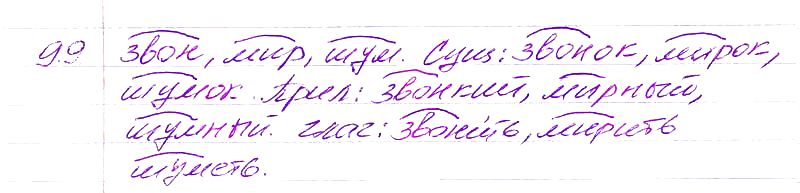 99 звон, мир, шум. Сущ: звонок, мирок,
шумок. Прил: звонкий, мирный,
шумный. глаг: звонить, мирить
шуметь.